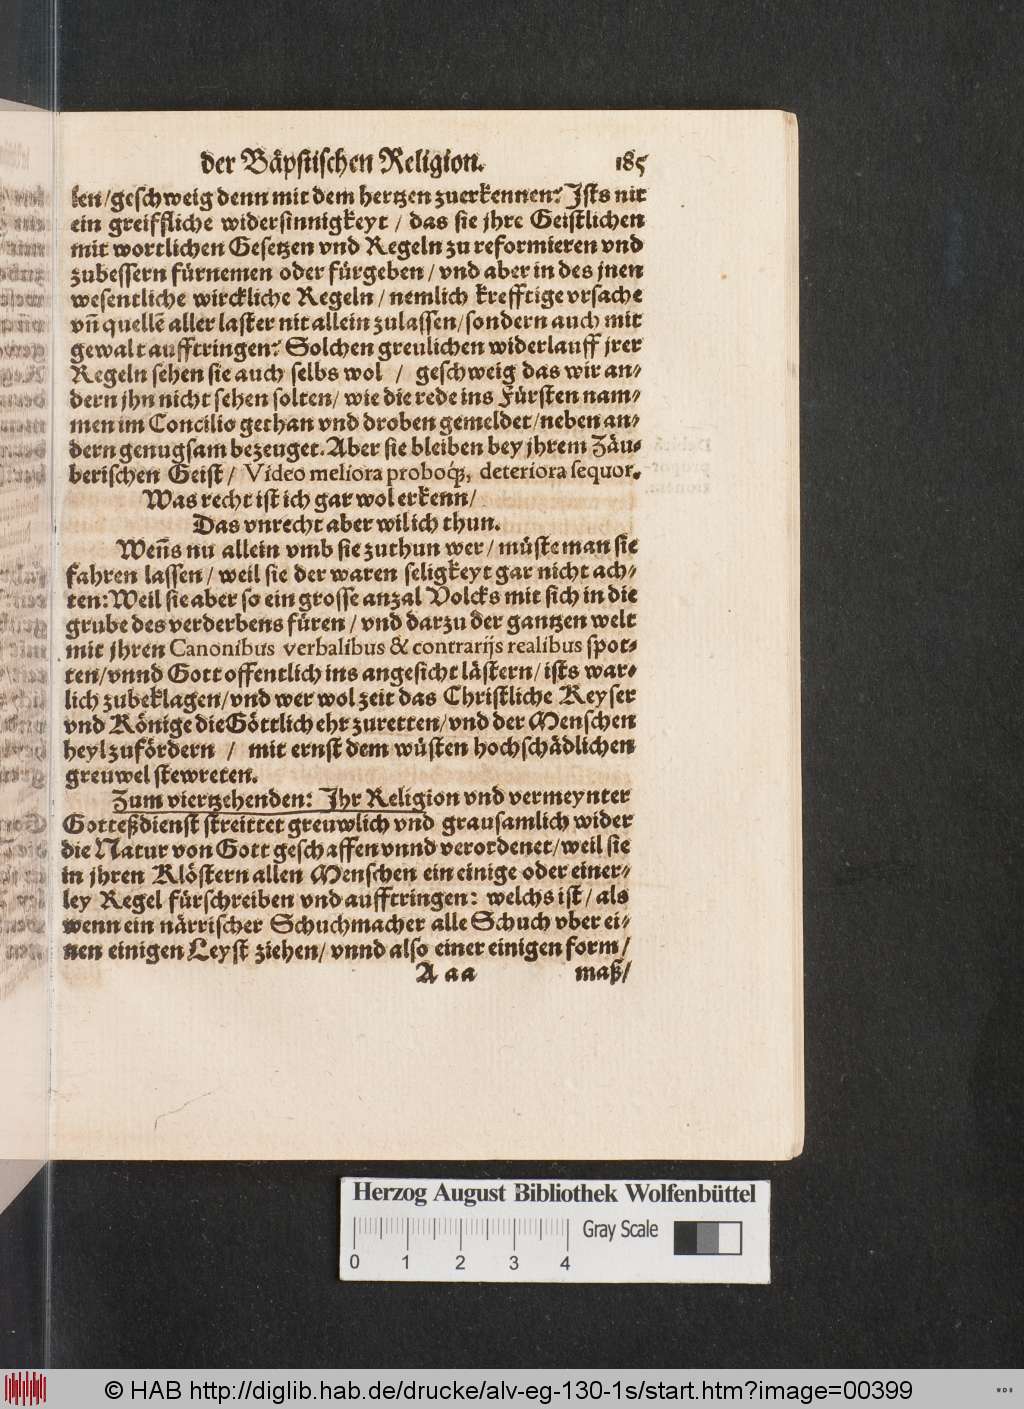 der Bäpstischen Religion. 185
len/geschweig denn mit dem hertzen zuerkennen: Ists nit
ein greiffliche widersinnigkeyt / das sie jhre Geistlichen
mit wortlichen Gesetzen vnd Regeln zu reformieren vnd
zubessern fürnemen oder fürgeben / vnd aber in des jnen
wesentliche wirckliche Regeln / nemlich krefftige vrsache
vñ quellẽ aller laster nit allein zulassen/sondern auch mit
gewalt aufftringen: Solchen greulichen widerlauff jrer
Regeln sehen sie auch selbs wol / geschweig das wir an-
dern jhn nicht sehen solten/ wie die rede ins Fürsten nam-
men im Concilio gethan vnd droben gemeldet/neben an-
dern genugsam bezeuget. Aber sie bleiben bey jhrem Zäu-
berischen Geist / Video meliora proboq́;, deteriora sequor.
Was recht ist ich gar wol erkenn/
Das vnrecht aber wil ich thun.
Weñs nu allein vmb sie zuthun wer / müste man sie
fahren lassen / weil sie der waren seligkeyt gar nicht ach-
ten: Weil sie aber so ein grosse anzal Volcks mit sich in die
grube des verderbens füren / vnd darzu der gantzen welt
mit jhren Canonibus verbalibus & contrarijs realibus spot-
ten/vnnd Gott offentlich ins angesicht lästern/ ists war-
lich zubeklagen/vnd wer wol zeit das Christliche Keyser
vnd Könige die Göttlich ehr zuretten/vnd der Menschen
heyl zufördern / mit ernst dem wüsten hochschädlichen
greuwel stewreten.
Zum viertzehenden: Ihr Religion vnd vermeynter
Gotteßdienst streittet greuwlich vnd grausamlich wider
die Natur von Gott geschaffen vnnd verordenet/weil sie
in jhren Klöstern allen Menschen ein einige oder einer-
ley Regel fürschreiben vnd aufftringen: welchs ist / als
wenn ein närrischer Schuchmacher alle Schuch vber ei-
nen einigen Leyst ziehen/ vnnd also einer einigen form/
A aa maß/
Herzog August Bibliothek Wolfenbüttel
Gray Scale
0 1 2 3 4
© HAB http://diglib.hab.de/drucke/alv-eg-130-1s/start.htm?image=00399